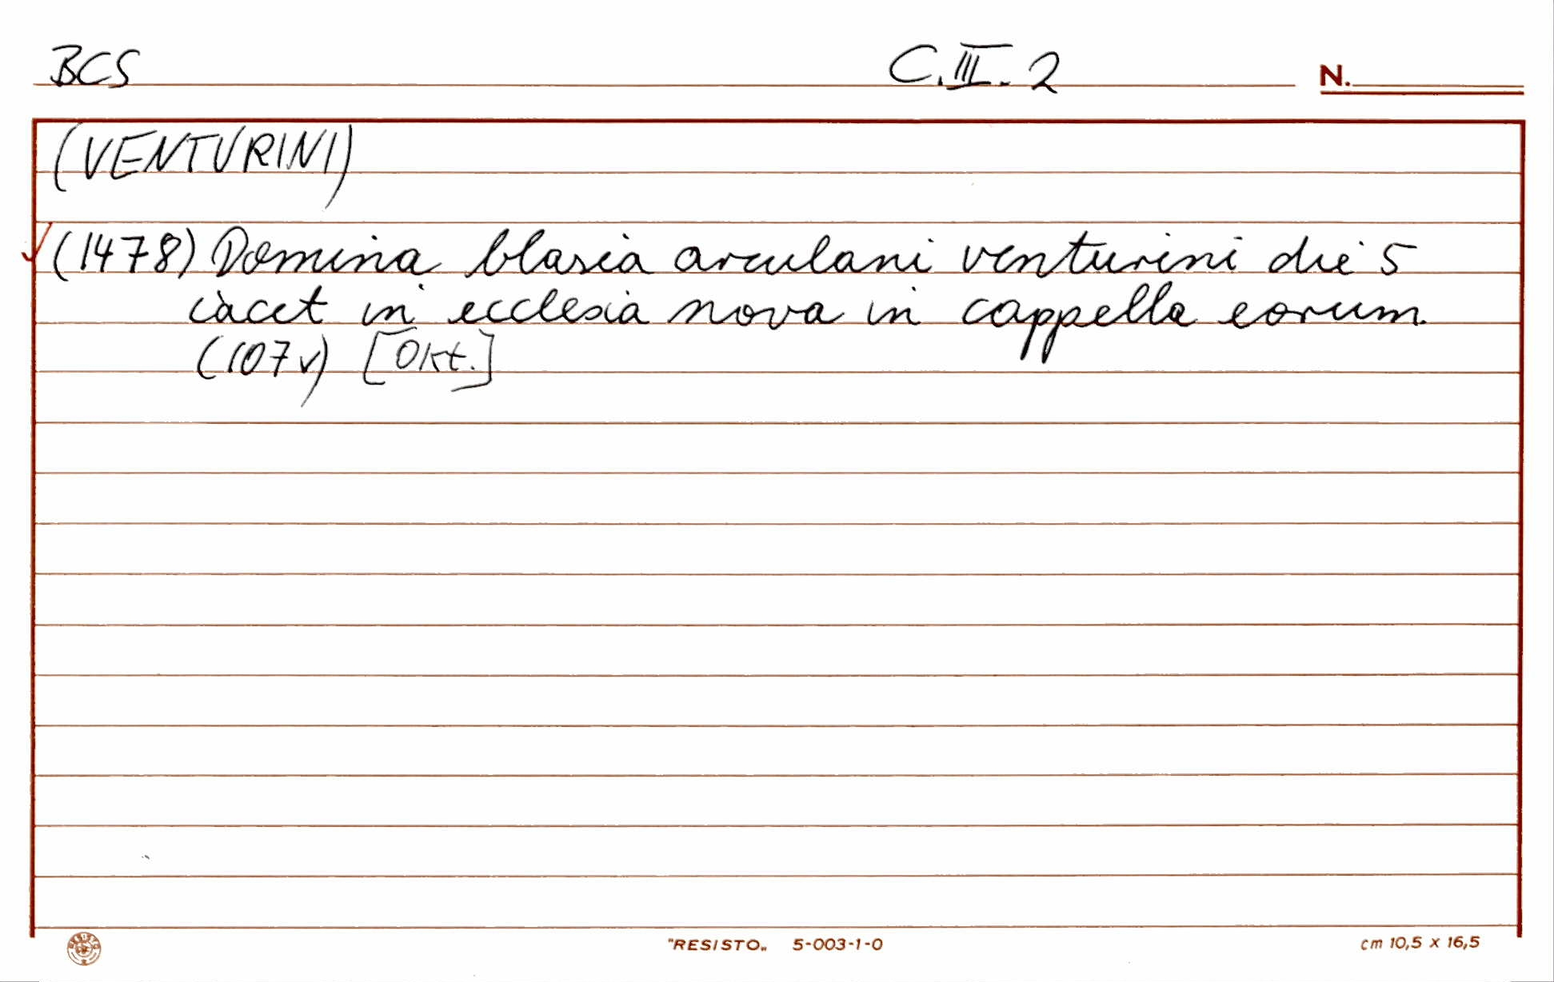 BCS C.III.2 N.
(VENTURINI)
(1478) Domina blasia arculani venturini die 5
iacet in ecclesia nova in cappella eorum.
(107v) [Okt.]
"RESISTO„ 5-003-1-0 cm 10,5 x 16,5